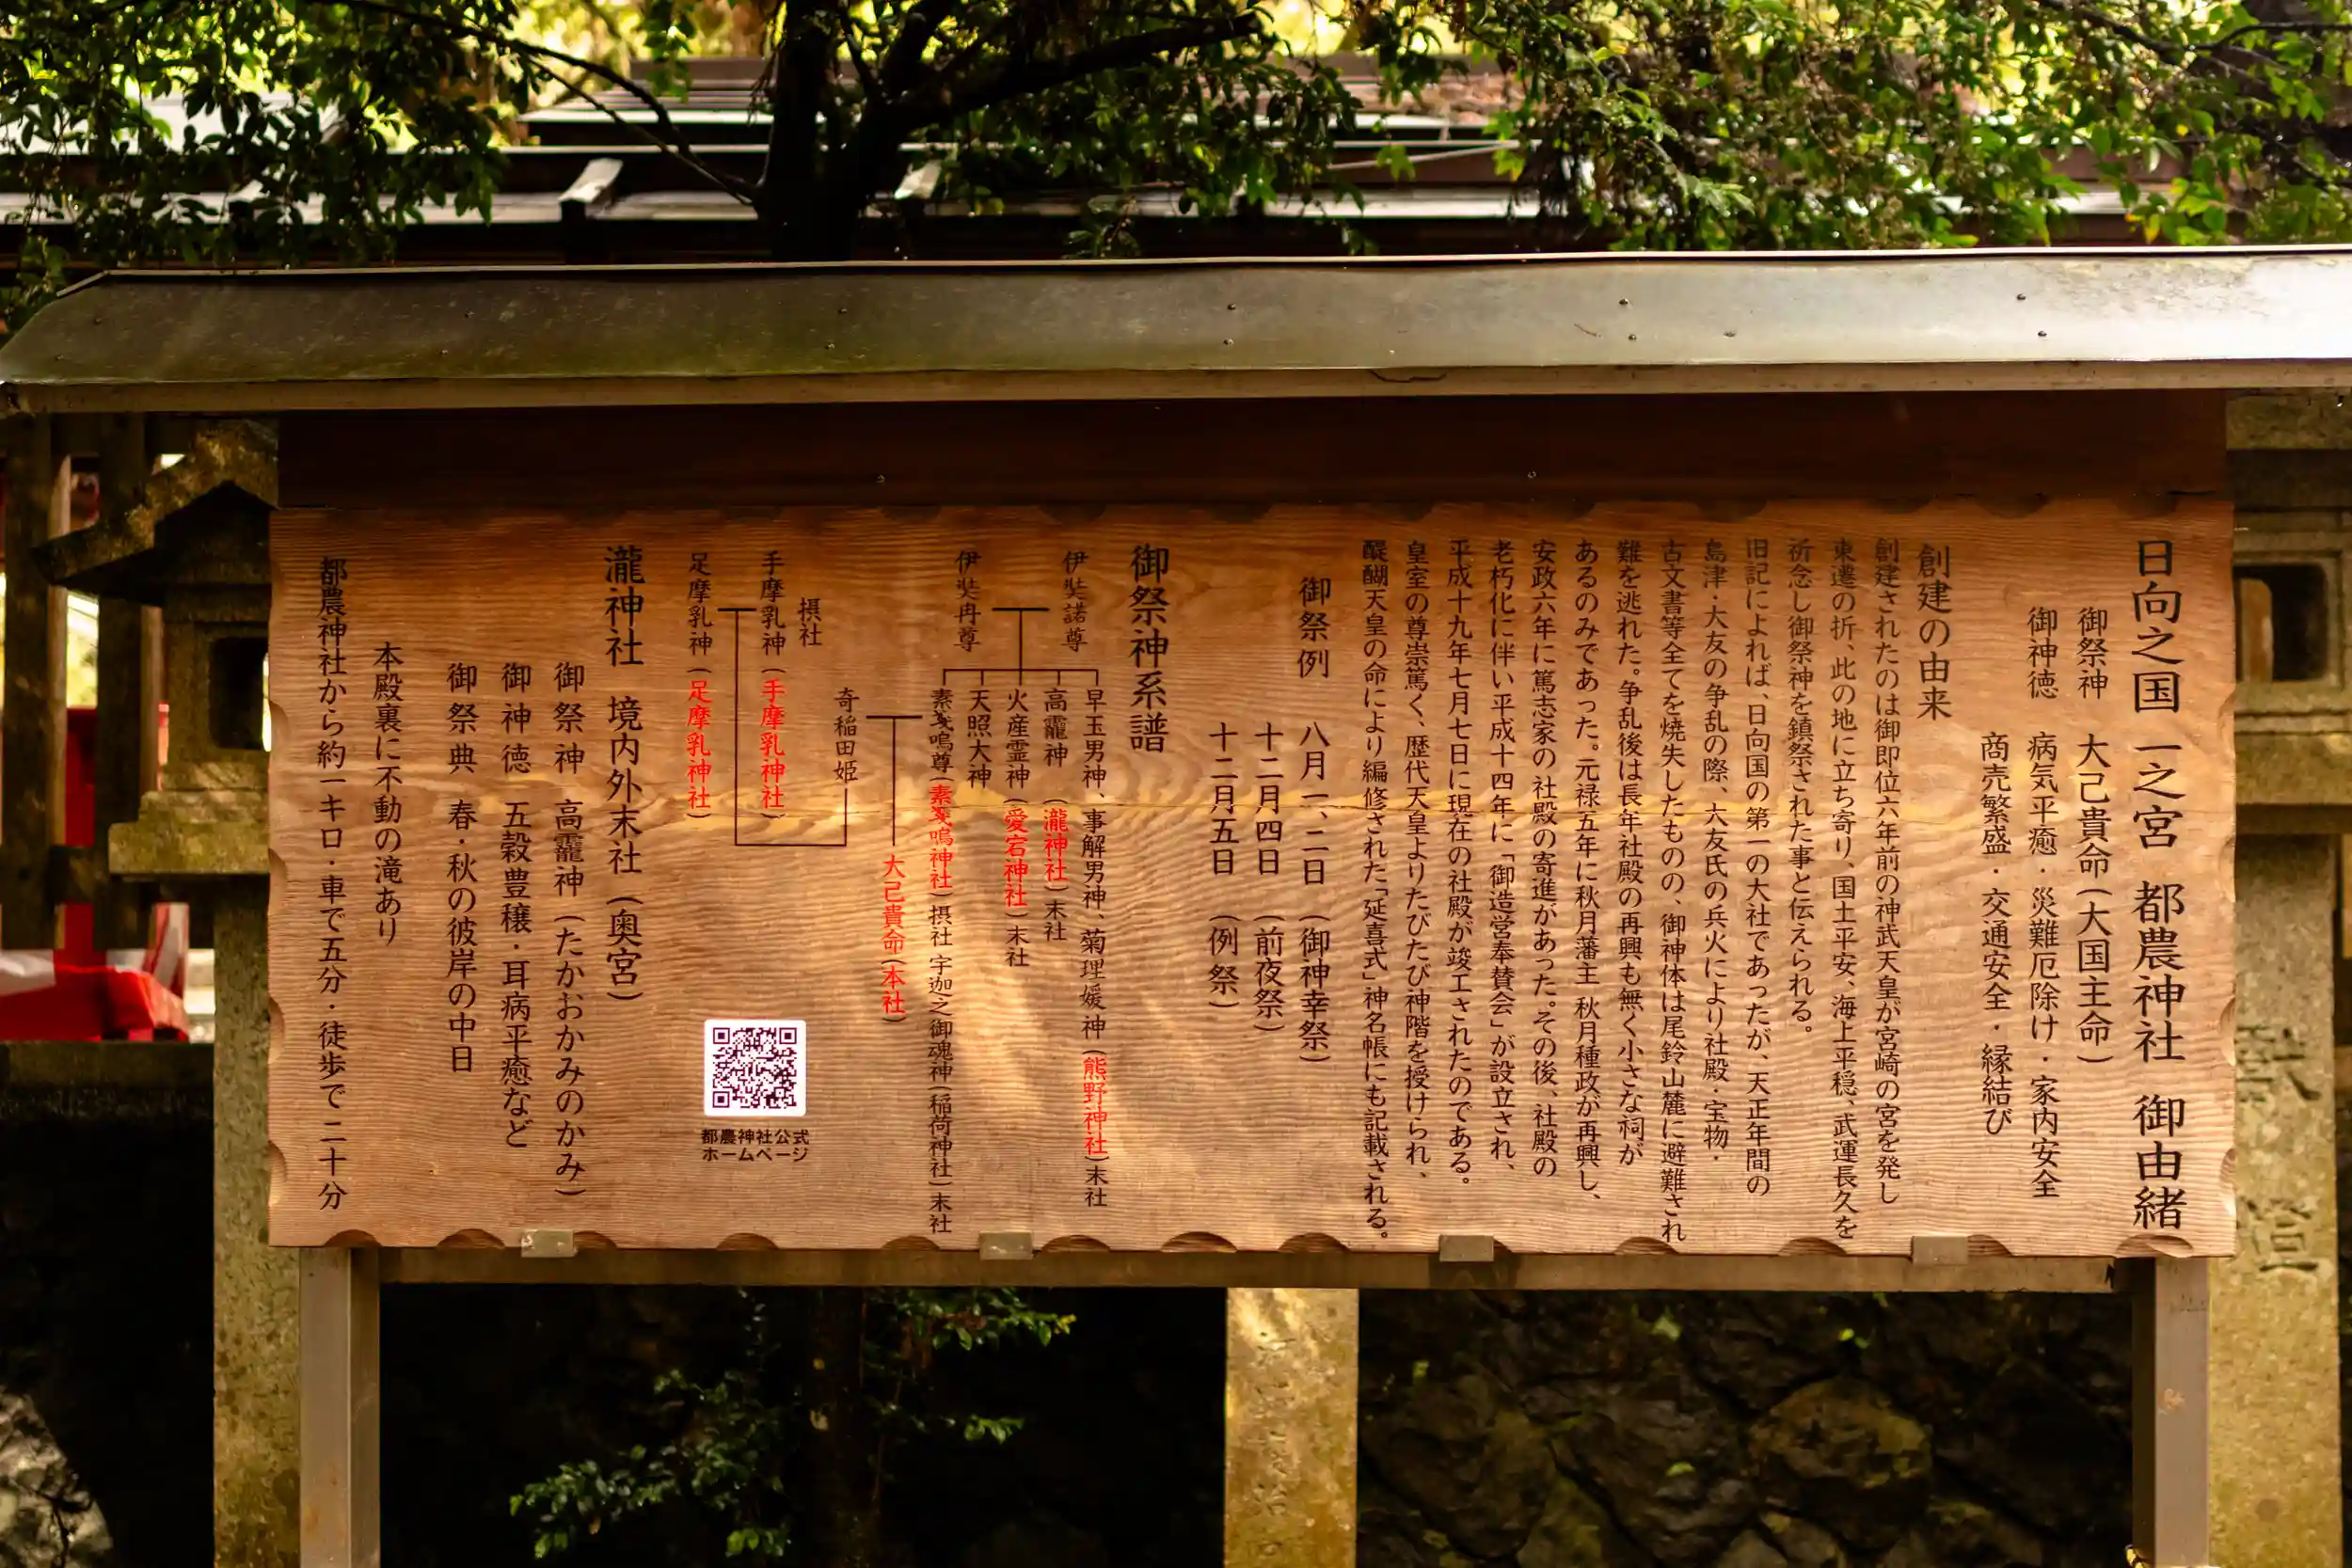 日向之国 一之宮 都農神社 御由緒
御祭神 大己貴命(大国主命)
御神徳 病気平癒・災難厄除け・家内安全
商売繁盛・交通安全・縁結び
創建の由来
創建されたのは御即位六年前の神武天皇が宮崎の宮を発し
東遷の折、此の地に立ち寄り、国土平安、海上平穏、武運長久を
祈念し御祭神を鎮祭された事と伝えられる。
旧記によれば、日向国の第一の大社であったが、天正年間の
島津・大友の争乱の際、大友氏の兵火により社殿・宝物・
古文書等全てを焼失したものの、御神体は尾鈴山麓に避難され
難を逃れた。争乱後は長年社殿の再興も無く小さな祠が
あるのみであった。元禄五年に秋月藩主 秋月種政が再興し、
安政六年に篤志家の社殿の寄進があった。その後、社殿の
老朽化に伴い平成十四年に「御造営奉賛会」が設立され、
平成十九年七月七日に現在の社殿が竣工されたのである。
皇室の尊崇篤く、歴代天皇よりたびたび神階を授けられ、
醍醐天皇の命により編修された「延喜式」神名帳にも記載される。
御祭例 八月一、二日 (御神幸祭)
十二月四日 (前夜祭)
十二月五日 (例祭)
御祭神系譜
伊奘諾尊
伊奘冉尊
早玉男神、事解男神、菊理媛神(熊野神社)末社
高龗神 (瀧神社)末社
火産霊神(愛宕神社)末社
天照大神
素戔嗚尊(素戔嗚神社)摂社 宇迦之御魂神(稲荷神社)末社
大己貴命(本社)
奇稲田姫
摂社
手摩乳神(手摩乳神社)
足摩乳神(足摩乳神社)
都農神社公式
ホームページ
瀧神社 境内外末社 (奥宮)
御祭神 高龗神(たかおかみのかみ)
御神徳 五穀豊穣・耳病平癒など
御祭典 春・秋の彼岸の中日
本殿裏に不動の滝あり
都農神社から約一キロ・車で五分・徒歩で二十分